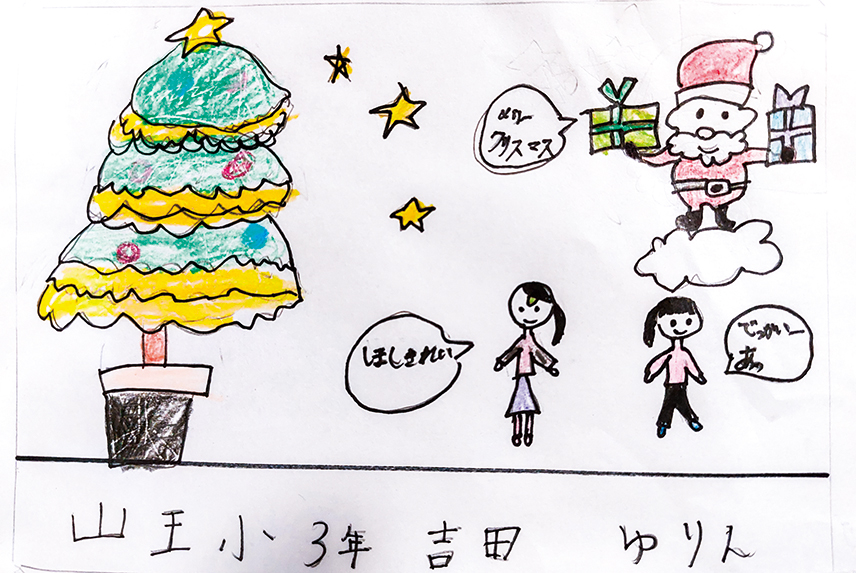 メリー
クリスマス
ほしきれい
でっかいー
あっ
山王小 3年 吉田 ゆりん